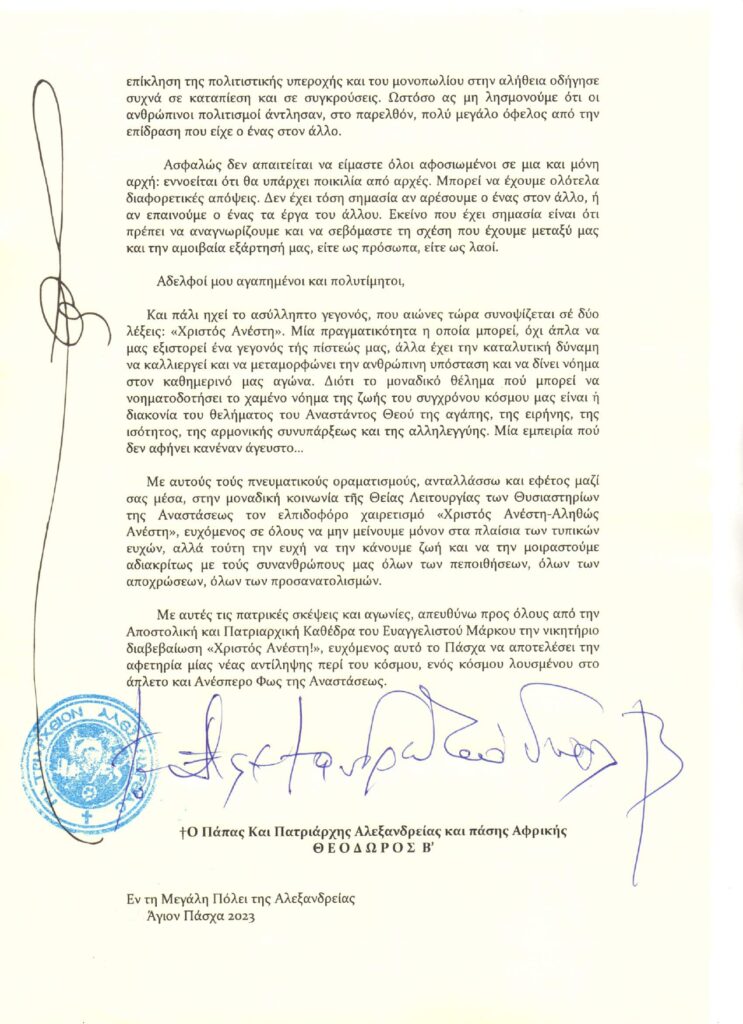 επίκληση της πολιτιστικής υπεροχής και του μονοπωλίου στην αλήθεια οδήγησε
συχνά σε καταπίεση και σε συγκρούσεις. Ωστόσο ας μη λησμονούμε ότι οι
ανθρώπινοι πολιτισμοί άντλησαν, στο παρελθόν, πολύ μεγάλο όφελος από την
επίδραση που είχε ο ένας στον άλλο.
Ασφαλώς δεν απαιτείται να είμαστε όλοι αφοσιωμένοι σε μια και μόνη
αρχή: εννοείται ότι θα υπάρχει ποικιλία από αρχές. Μπορεί να έχουμε ολότελα
διαφορετικές απόψεις. Δεν έχει τόση σημασία αν αρέσουμε ο ένας στον άλλο, ή
αν επαινούμε ο ένας τα έργα του άλλου. Εκείνο που έχει σημασία είναι ότι
πρέπει να αναγνωρίζουμε και να σεβόμαστε τη σχέση που έχουμε μεταξύ μας
και την αμοιβαία εξάρτησή μας, είτε ως πρόσωπα, είτε ως λαοί.
Αδελφοί μου αγαπημένοι και πολυτίμητοι,
Και πάλι ηχεί το ασύλληπτο γεγονός, που αιώνες τώρα συνοψίζεται σέ δύο
λέξεις: «Χριστός Ανέστη». Μία πραγματικότητα η οποία μπορεί, όχι άπλα να
μας εξιστορεί ένα γεγονός τής πίστεώς μας, άλλα έχει την καταλυτική δύναμη
να καλλιεργεί και να μεταμορφώνει την ανθρώπινη υπόσταση και να δίνει νόημα
στον καθημερινό μας αγώνα. Διότι το μοναδικό θέλημα πού μπορεί να
νοηματοδοτήσει το χαμένο νόημα της ζωής του συγχρόνου κόσμου μας είναι ή
διακονία του θελήματος του Αναστάντος Θεού της αγάπης, της ειρήνης, της
ισότητος, της αρμονικής συνυπάρξεως και της αλληλεγγύης. Μία εμπειρία πού
δεν αφήνει κανέναν άγευστο...
Με αυτούς τούς πνευματικούς οραματισμούς, ανταλλάσσω και εφέτος μαζί
σας μέσα, στην μοναδική κοινωνία τῆς Θείας Λειτουργίας των Θυσιαστηρίων
της Αναστάσεως τον ελπιδοφόρο χαιρετισμό «Χριστός Ανέστη-Αληθώς
Ανέστη», ευχόμενος σε όλους να μην μείνουμε μόνον στα πλαίσια των τυπικών
ευχών, αλλά τούτη την ευχή να την κάνουμε ζωή και να την μοιραστούμε
αδιακρίτως με τούς συνανθρώπους μας όλων των πεποιθήσεων, όλων των
αποχρώσεων, όλων των προσανατολισμών.
Με αυτές τις πατρικές σκέψεις και αγωνίες, απευθύνω προς όλους από την
Αποστολική και Πατριαρχική Καθέδρα του Ευαγγελιστού Μάρκου την νικητήριο
διαβεβαίωση «Χριστός Ανέστη!», ευχόμενος αυτό το Πάσχα να αποτελέσει την
αφετηρία μίας νέας αντίληψης περί του κόσμου, ενός κόσμου λουσμένου στο
άπλετο και Ανέσπερο Φως της Αναστάσεως.
†Ο Πάπας Και Πατριάρχης Αλεξανδρείας και πάσης Αφρικής
ΘΕΟΔΩΡΟΣ Β'
Εν τη Μεγάλη Πόλει της Αλεξανδρείας
Άγιον Πάσχα 2023